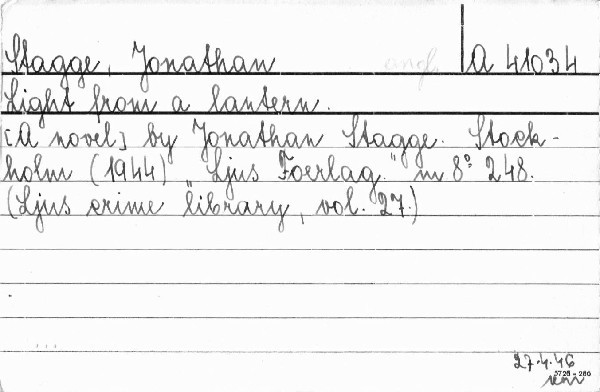 Stagge, Jonathan angl. A 41034
Light from a lantern.
[A novel] by Jonathan Stagge. Stock-
holm (1944) „Ljus Foerlag." m 8° 248.
(Ljus crime library, vol. 27.)
27.4.46
5728 - 286